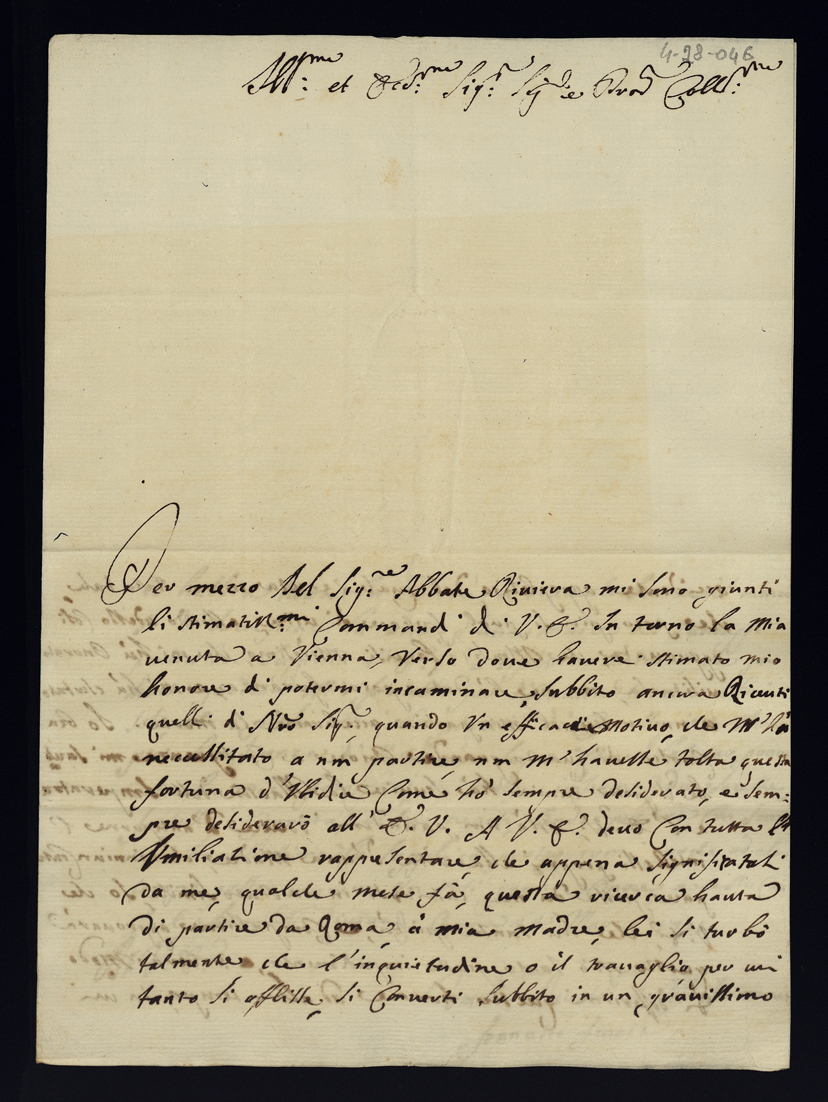 4-28-046
Ill:mo et Ecc:mo Sig:r Sig:re e Prod Coll:mo
Per mezzo del Sig:re Abbate Riviera mi sono giunti
li stimatiss:mi Commandi di V. E. In torno la mia
venuta a Vienna, verso dove havere stimato mio
honore di potermi incaminare subbito ancora Ricevti
quelli di Nro Sig:re, quando Un efficace Motivo, che M'hà
necessitato a nm partire, nm m'havesse tolta questa
fortuna d'Vbidire Come hò sempre desiderato, e sem-
pre desiderarò all' E. V. A V. E. devo Con tutta
Vmiliatione rappresentare, che appena significatali
da me, qualche mese fà, questa ricerca hauta
di partire da Roma, à mia Madre, lei si turbò
talmente che l'inquietudine o il travaglio per cui
tanto si afflisse, si Convertì subbito in un gravissimo